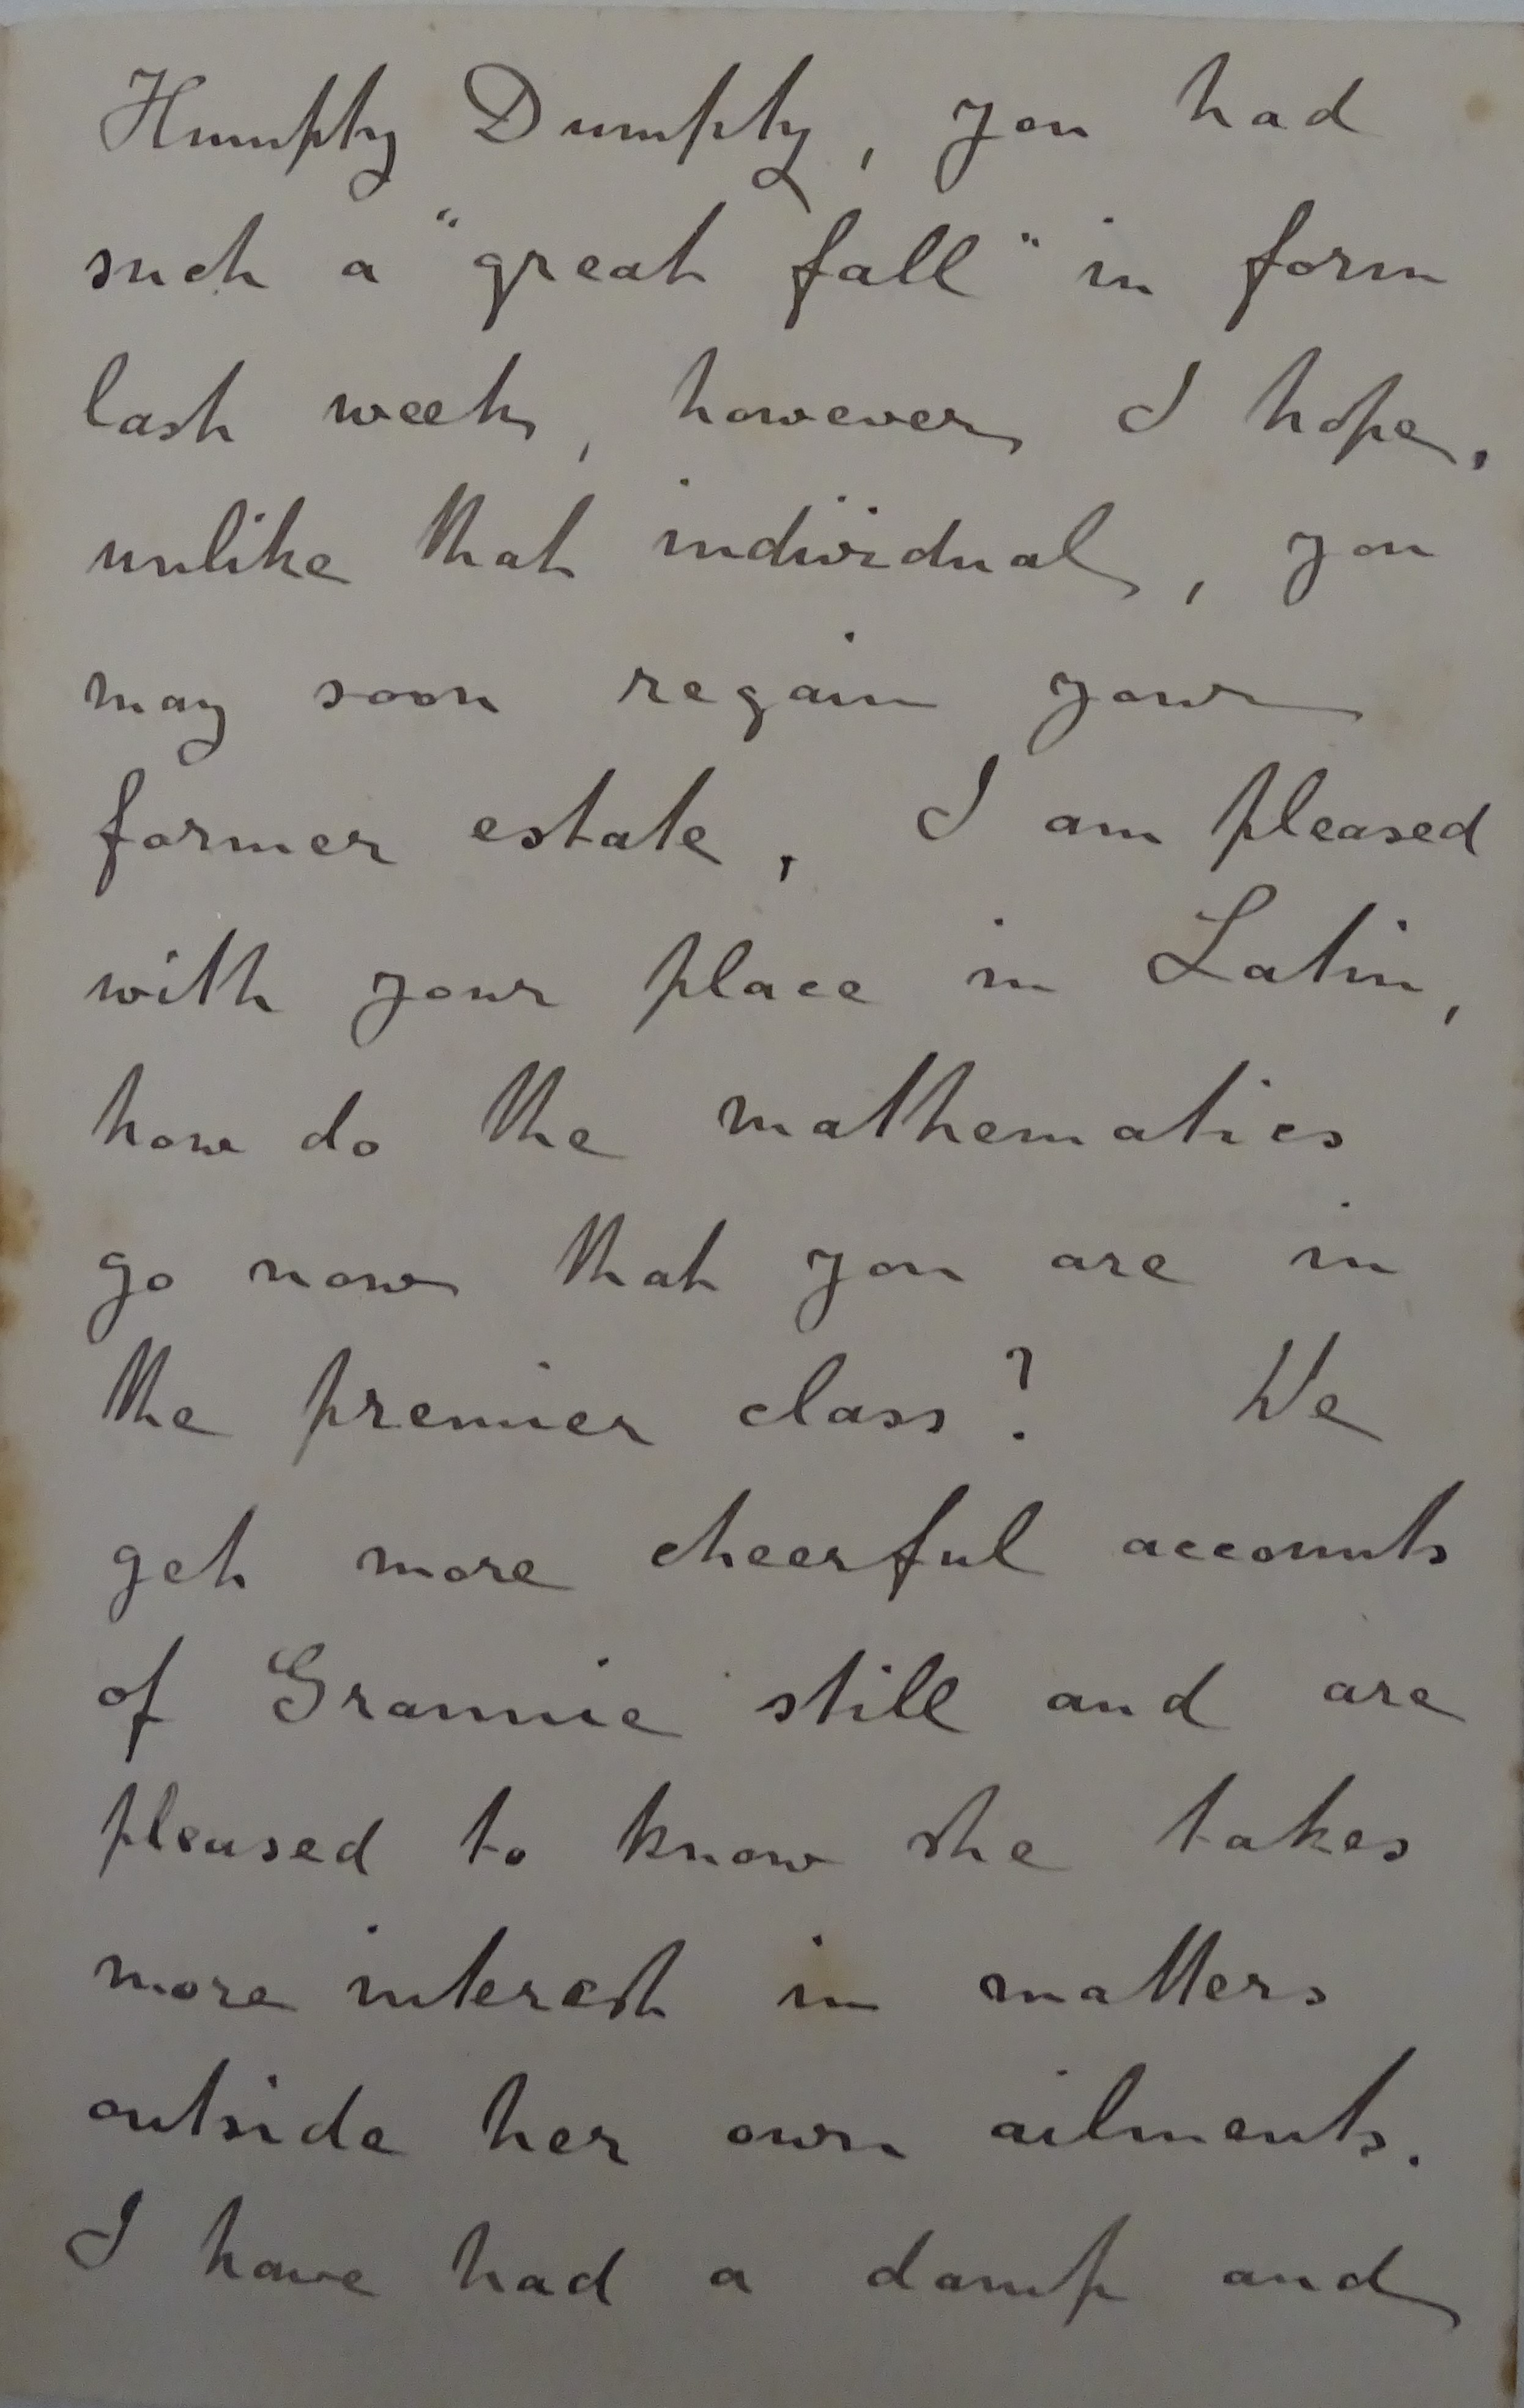 Humpty Dumpty, you had
such a "great fall" in form
last week, however I hope,
unlike that individual, you
may soon regain your
former estate, I am pleased
with your place in Latin,
how do the mathematics
go now that you are in
the premier class? We
get more cheerful accounts
of Grannie still and are
pleased to know she takes
more interest in matters
outside her own ailments.
I have had a damp and